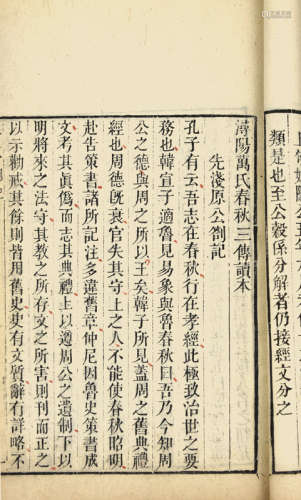 類是也至公穀係分解者仍接經文分之
潯陽萬氏春秋三傳讀本
先淺原公劄記
孔子有云吾志在春秋行在孝經此極致治世之要
務也韓宣子適魯見易象與魯春秋曰吾乃今知周
公之德與周之所以王矣韓子所見蓋周之舊典禮
經也周德旣衰官失其守上之人不能使春秋昭明
赴告策書諸所記注多違舊章仲尼因魯史策書成
文考其眞僞而志其典禮上以遵周公之遺制下以
明將來之法守其教之所存文之所害則刊而正之
以示勸戒其餘則皆用舊史史有文質辭有詳略不